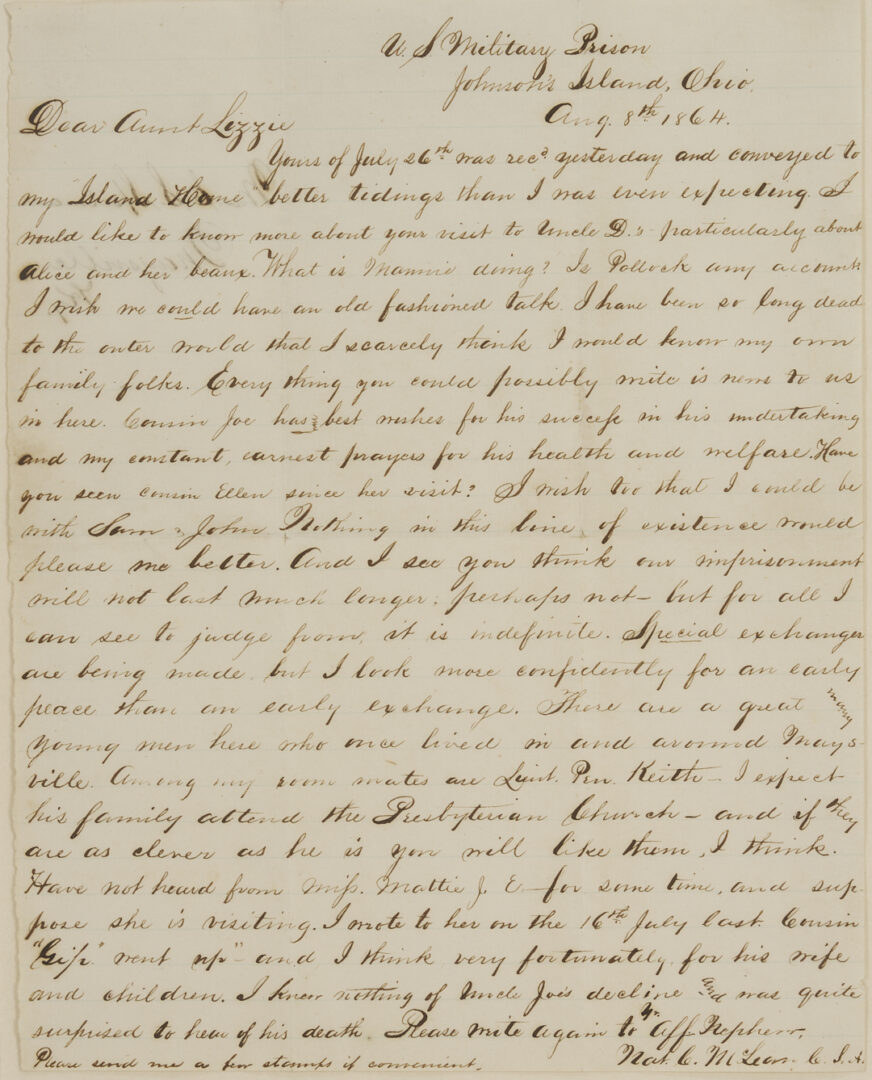 U. S. Military Prison
Johnson's Island, Ohio.
Aug. 8th 1864.
Dear Aunt Lizzie
Yours of July 26th was recd yesterday and conveyed to
my "Island Home" better tidings than I was even expecting. I
would like to know more about your visit to Uncle D.s particularly about
Alice and her beaux. What is Mannie doing? Is Pollock any account
I wish we could have an old fashioned talk. I have been so long dead
to the outer world that I scarcely think I would know my own
family folks. Every thing you could possibly write is news to us
in here. Cousin Joe has best wishes for his success in his undertaking
and my constant, earnest prayers for his health and welfare. Have
you seen cousin Ellen since her visit? I wish too that I could be
with Sam & John. Nothing in this line of existence would
please me better. And I see you think our imprisonment
will not last much longer; perhaps not – but for all I
can see to judge from, it is indefinite. Special exchanges
are being made, but I look more confidently for an early
peace than an early exchange. There are a great many
young men here who once lived in and around Mays-
ville. Among my room mates are Lieut. Pen. Keith – I expect
his family attend the Presbyterian Church – and if they
are as clever as he is you will like them, I think.
Have not heard from Miss. Mattie J. E – for some time, and sup-
pose she is visiting. I wrote to her on the 16th July last. Cousin
"went up" – and I think very fortunately for his wife
and children. I knew nothing of Uncle Joe's decline and was quite
surprised to hear of his death. Please write again to Yr. Aff. Nephew,
Nat. C. McLean. C. S. A.
Please send me a few stamps if convenient.